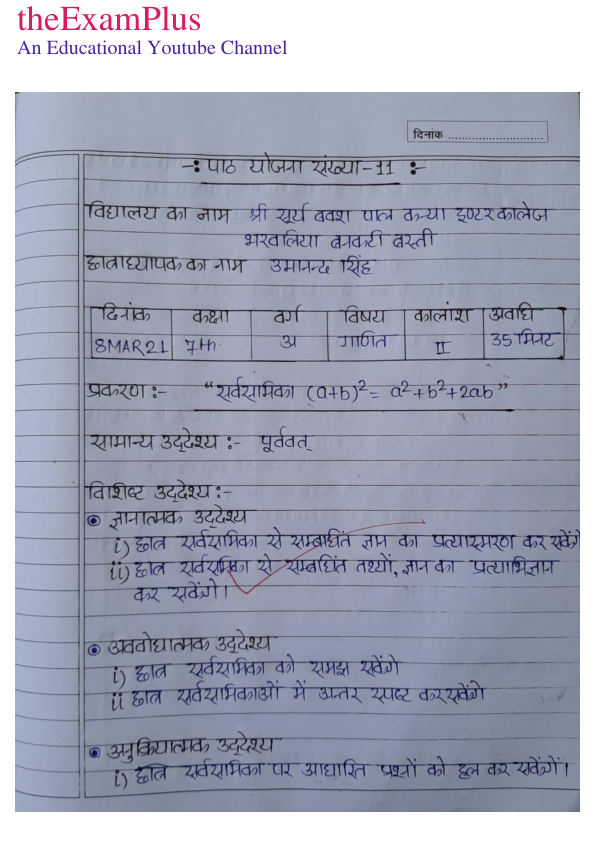 theExamPlus
An Educational Youtube Channel
दिनांक ..............................
-: पाठ योजना संख्या-11 :-
विद्यालय का नाम श्री सूर्य बक्श पाल कन्या इण्टर कालेज
भरवलिया बनकटी बस्ती
छात्राध्यापक का नाम उमानन्द सिंह
दिनांक कक्षा वर्ग विषय कालांश अवधि
8MAR21 7th अ गणित II 35 मिनट
प्रकरण :- "सर्वसमिका (a+b)² = a²+b²+2ab"
सामान्य उद्देश्य :- पूर्ववत्
विशिष्ट उद्देश्य :-
ज्ञानात्मक उद्देश्य
i) छात्र सर्वसमिका से सम्बधित ज्ञान का प्रत्यास्मरण कर सकेंगे
ii) छात्र सर्वसमिका से सम्बधित तथ्यों, ज्ञान का प्रत्याभिज्ञान
कर सकेंगे।
अवबोधात्मक उद्देश्य
i) छात्र सर्वसमिका को समझ सकेंगे
ii छात्र सर्वसमिकाओं में अन्तर स्पष्ट कर सकेंगे
अनुक्रियात्मक उद्देश्य
i) छात्र सर्वसमिका पर आधारित प्रश्नों को हल कर सकेंगें।